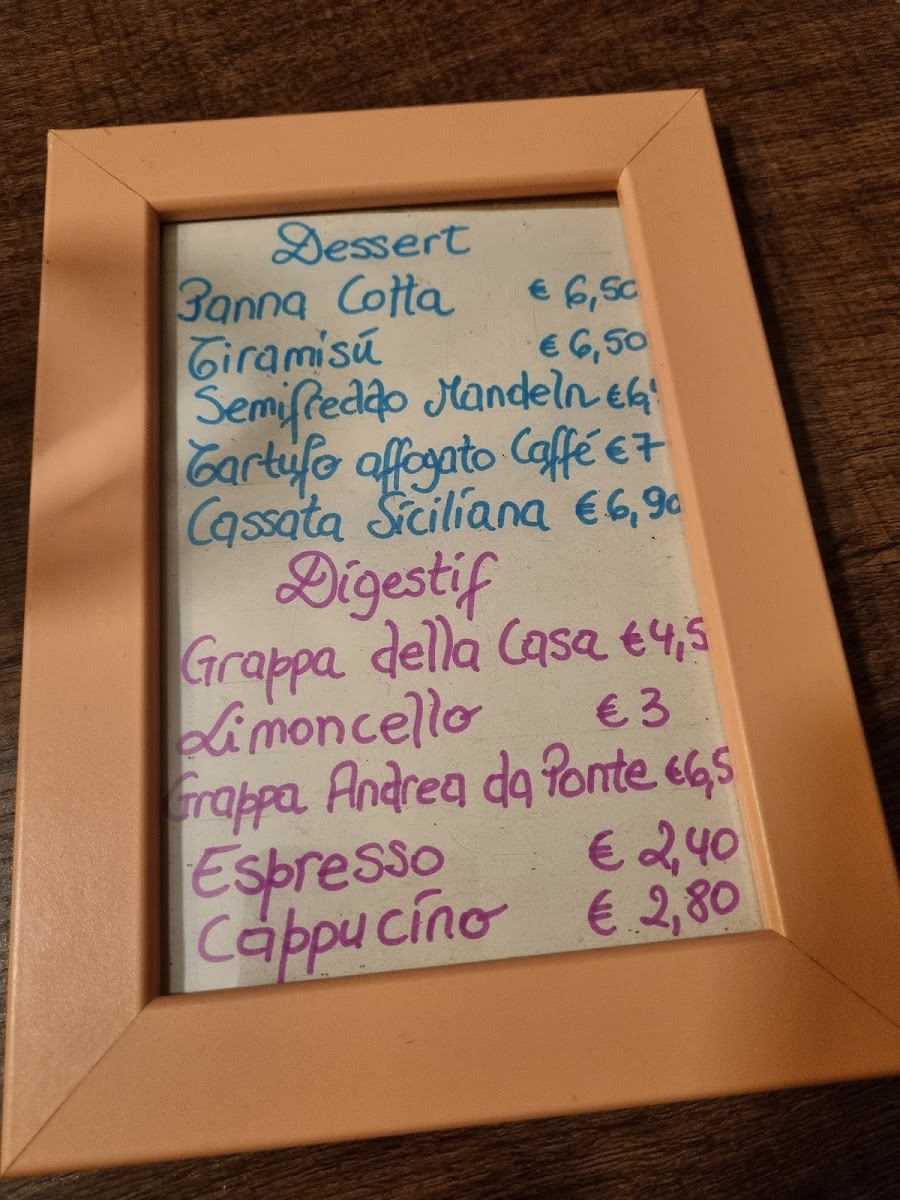 Dessert
Panna Cotta € 6,50
Tiramisú € 6,50
Semifreddo Mandeln €6,
Tartufo affogato Caffé € 7
Cassata Siciliana € 6,90
Digestif
Grappa della Casa €4,5
Limoncello € 3
Grappa Andrea da Ponte €6,5
Espresso € 2,40
Cappucino € 2,80